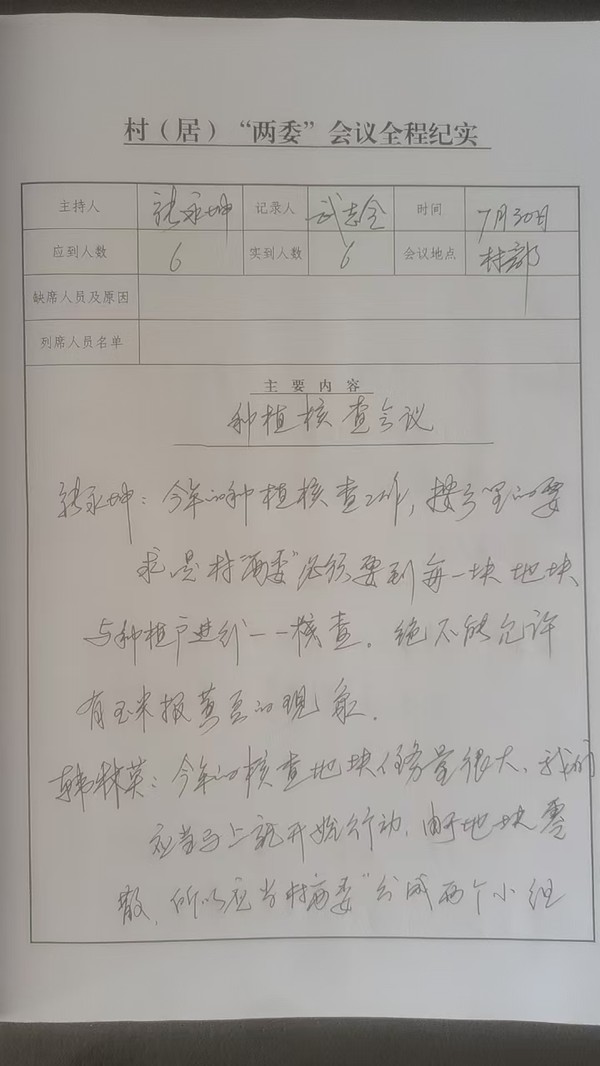 村（居）“两委”会议全程纪实
主持人 张永坤 记录人 武志全 时间 7月30日
应到人数 6 实到人数 6 会议地点 村部
缺席人员及原因
列席人员名单
主要内容
种植核查会议
张永坤：今年的种植核查工作，按乡里的要
求是村“两委”必须要到每一块地块
与种植户进行一一核查。绝不能允许
有玉米报黄豆的现象。
韩秋英：今年的核查地块任务量很大、我们
应当马上就开始行动，由于地块零
散，所以应当村两委”分成两个小组